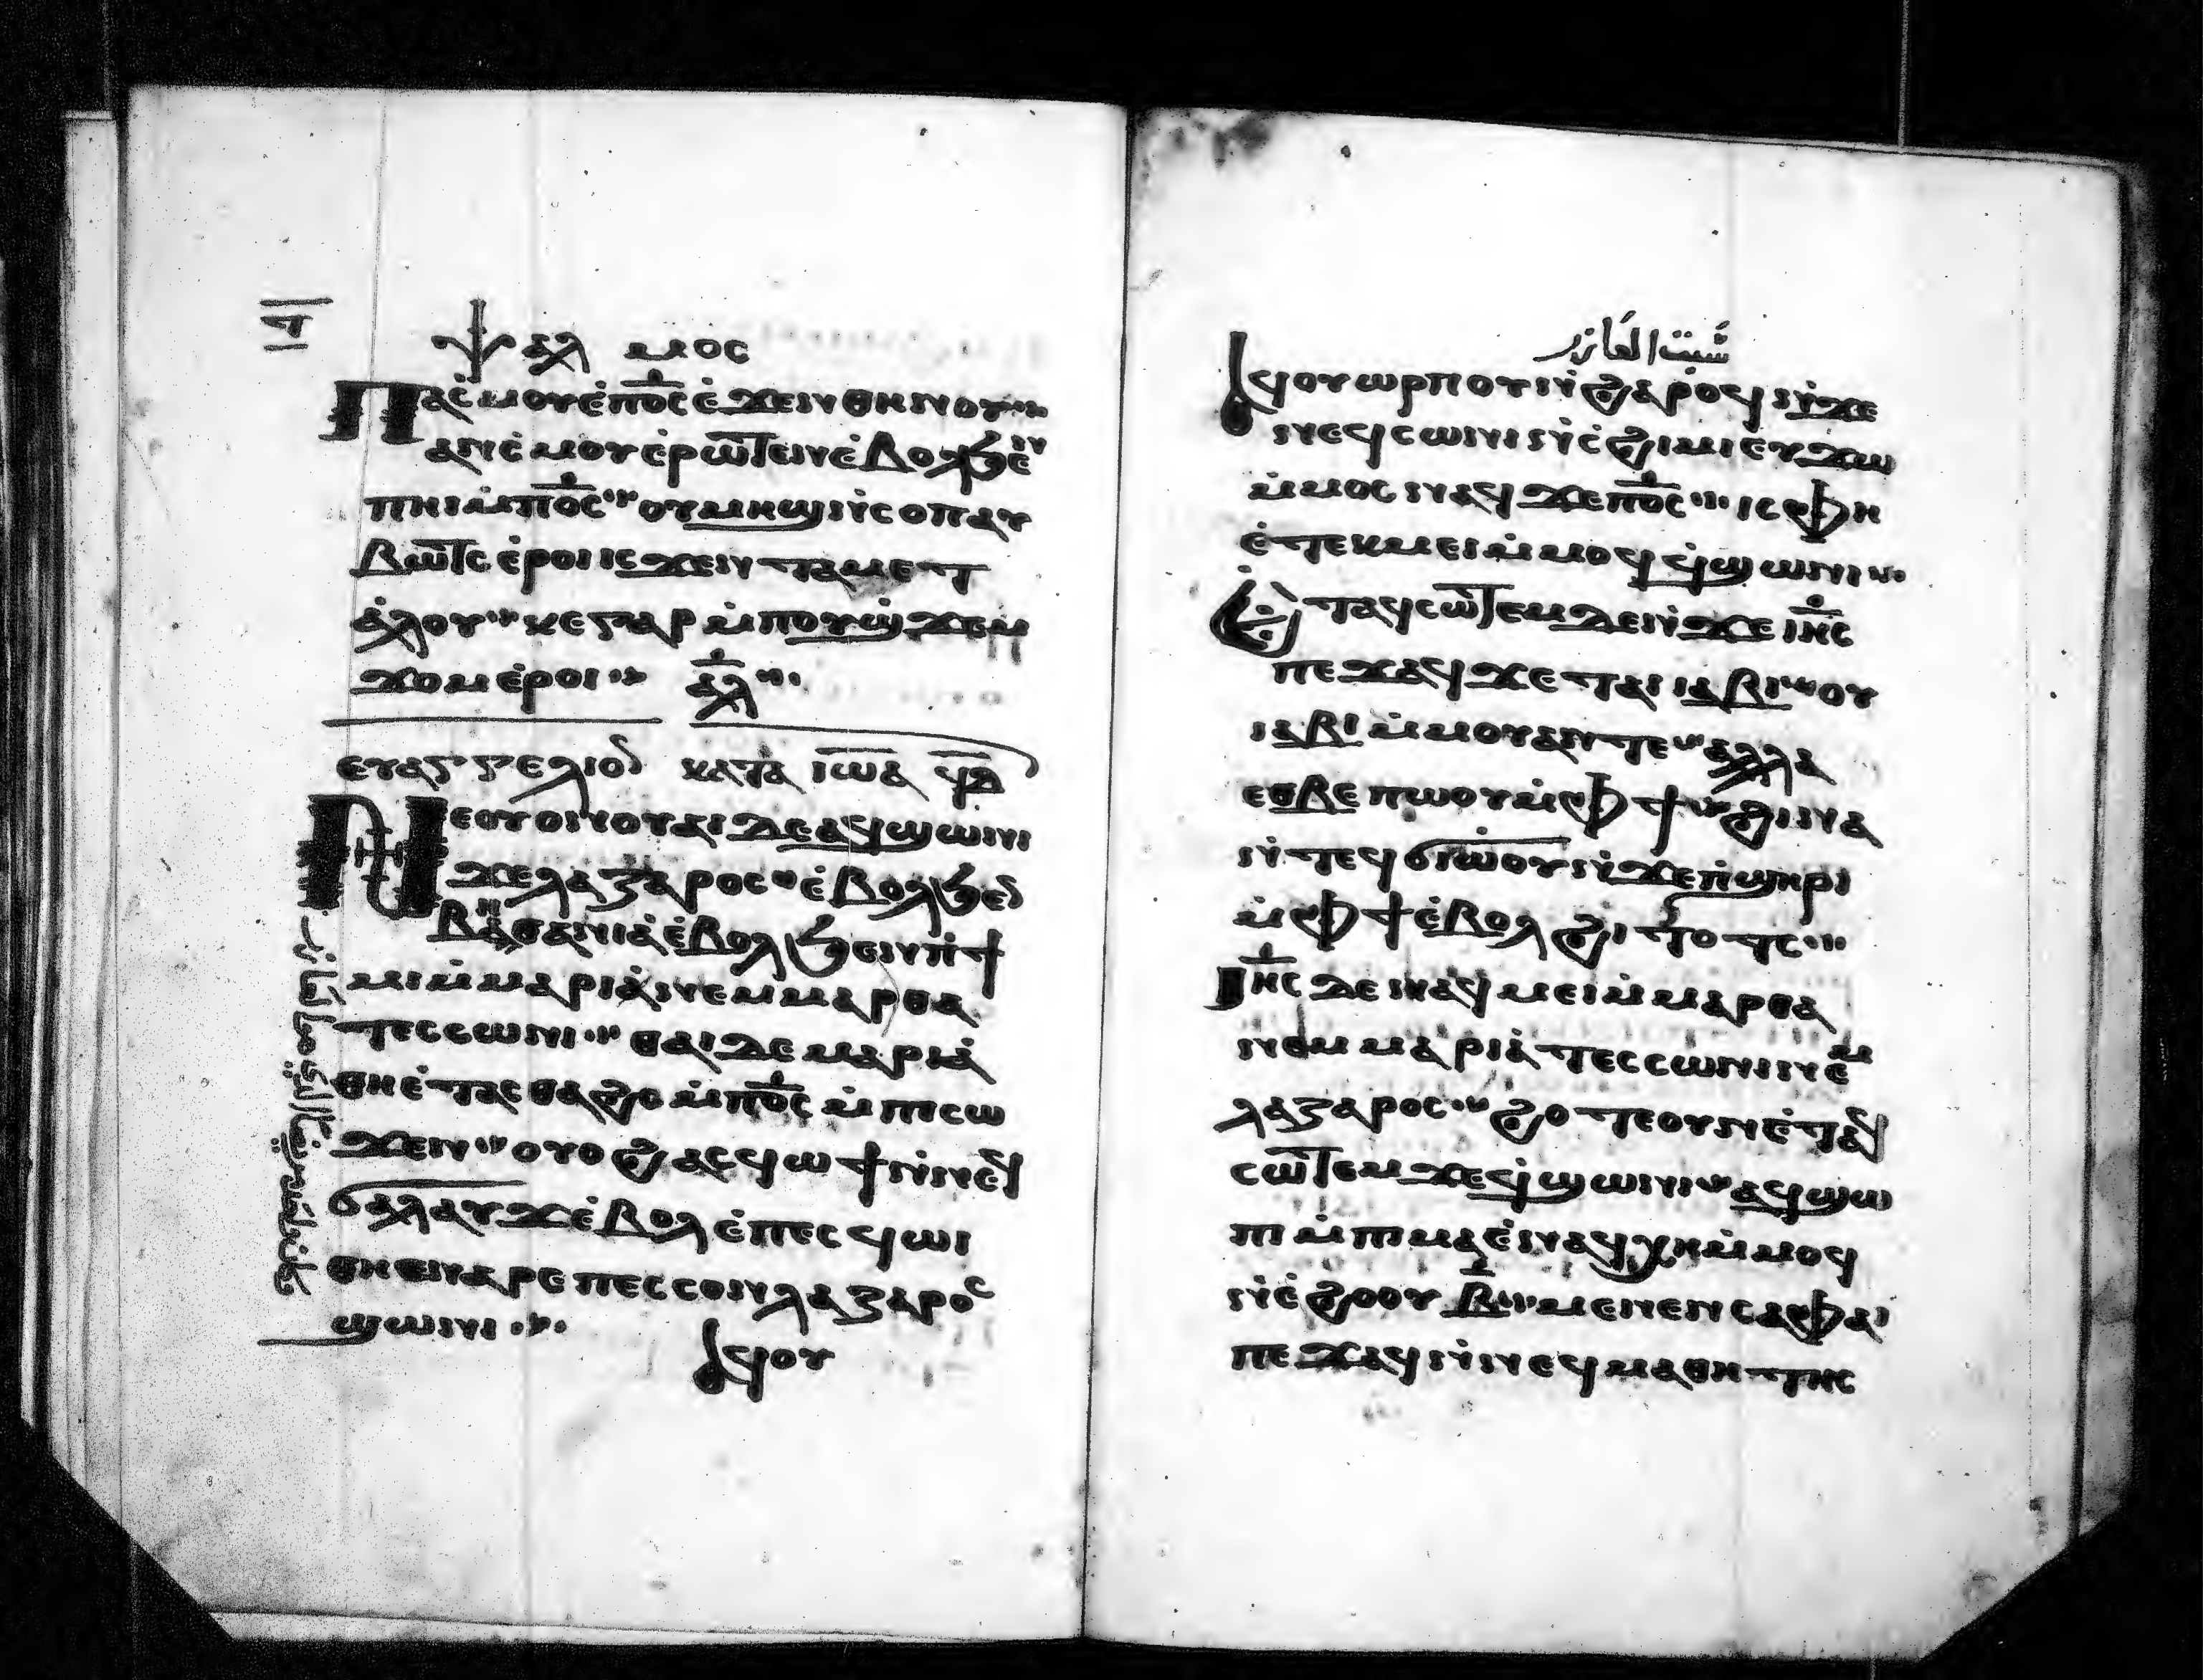 ⲯⲁⲗⲙⲟⲥ
Ⲡⲁⲥⲙⲟⲩ ⲉⲡⲟ̅ⲥ̅ ⲉϫⲉⲛ ⲑⲏⲛⲟⲩ
ⲁⲛⲥⲙⲟⲩ ⲉⲣⲱⲧⲉⲛ ⲉⲃⲟⲗϧⲉⲛ
ⲡⲏⲓ ⲙ̇ⲡⲟ̅ⲥ̅ ⲟⲩⲙⲏϣ ⲛ̇ⲥⲟⲡ ⲁⲩ
ⲃⲱⲧⲥ ⲉⲣⲟⲓ ⲓⲥϫⲉⲛ ⲧⲁⲙⲉⲧ
ⲁⲗⲟⲩ ⲕⲉⲅⲁⲣ ⲙ̇ⲡⲟⲩϣϫⲉⲙ
ϫⲟⲙ ⲉⲣⲟⲓ ⲁ̅ⲗ̅
ⲉⲩⲁⲅⲅⲉⲗⲓⲟⲛ ⲕⲁⲧⲁ ⲓⲱⲁ
Ⲛⲉⲟⲩⲟⲛ ⲟⲩⲁⲓ ⲇⲉ ⲁϥϣⲱⲛⲓ
ϫⲉ ⲗⲁⲍⲁⲣⲟⲥ ⲉⲃⲟⲗϧⲉⲛ
ⲃⲏⲑⲁⲛⲓⲁ ⲉⲃⲟⲗϧⲉⲛ ⲡϯ
ⲙⲓ ⲙ̇ⲙⲁⲣⲓⲁ ⲛⲉⲙ ⲙⲁⲣⲑⲁ
ⲧⲉⲥⲥⲱⲛⲓ ⲑⲁⲓ ⲇⲉ ⲙⲁⲣⲓⲁ
ⲑⲏ ⲉⲧⲁⲥⲑⲁϩⲥ ⲙ̇ⲡⲟ̅ⲥ̅ ⲙ̇ⲡⲓⲥⲟ
ϫⲉⲛ ⲟⲩⲟϩ ⲁⲥϥⲱϯ ⲛ̇ⲛⲉϥ
ϭⲁⲗⲁⲩϫ ⲉⲃⲟⲗ ⲉⲡⲉⲥϥⲱⲓ
ⲑⲏ ⲉⲛⲁⲣⲉ ⲡⲉⲥⲥⲟⲛ ⲗⲁⲍⲁⲣⲟⲥ
ϣⲱⲛⲓ
ⲁϥⲟⲩ
شبت العازر
Ⲁϥⲟⲩⲱⲣⲡ ⲟⲩⲛ ϩⲁⲣⲟϥ ⲛ̇ϫⲉ
ⲛⲉϥⲥⲱⲛⲓ ⲛ̇ⲥϩⲓⲙⲓ ⲉⲩϫⲱ
ⲙ̇ⲙⲟⲥ ⲛⲁϥ ϫⲉ ⲡⲟ̅ⲥ̅ ⲓⲥ ⲫⲏ
ⲉⲧⲉⲕⲙⲉⲓ ⲙ̇ⲙⲟϥ ϥ̇ϣⲱⲛⲓ
Ⲉⲧⲁϥⲥⲱⲧⲉⲙ ⲇⲉ ⲛ̇ϫⲉ ⲓⲏ̅ⲥ̅
ⲡⲉϫⲁϥ ϫⲉ ⲡⲁⲓ ⲓⲁⲃⲓ ⲟⲩ
ⲓⲁⲃⲓ ⲙ̇ⲙⲟⲩ ⲁⲛ ⲧⲉ ⲁⲗⲗⲁ
ⲉⲑⲃⲉ ⲡⲱⲟⲩ ⲙ̇ⲫϯ ϩⲓⲛⲁ
ⲛ̇ⲧⲉϥϭⲓⲱⲟⲩ ⲛ̇ϫⲉ ⲡ̇ϣⲏⲣⲓ
ⲙ̇ⲫϯ ⲉⲃⲟⲗϩⲓⲧⲟⲧⲥ
Ⲓⲏ̅ⲥ̅ ⲇⲉ ⲛⲁϥⲙⲉⲓ ⲙ̇ⲙⲁⲣⲑⲁ
ⲛⲉⲙ ⲙⲁⲣⲓⲁ ⲧⲉⲥⲥⲱⲛⲓ ⲛⲉⲙ
ⲗⲁⲍⲁⲣⲟⲥ ϩⲟⲧⲉ ⲟⲩⲛ ⲉⲧⲁϥ
ⲥⲱⲧⲉⲙ ϫⲉ ϥ̇ϣⲱⲛⲓ ⲁϥϣⲱ
ⲡⲓ ⲙ̇ⲡⲓⲙⲁ ⲉⲛⲁϥⲭⲏ ⲙ̇ⲙⲟϥ
ⲛ̇ⲉϩⲟⲟⲩ ⲃ̅ ⲙⲉⲛⲉⲛⲥⲁ ⲫⲁⲓ
ⲡⲉϫⲁϥ ⲛ̇ⲛⲉϥⲙⲁⲑⲏⲧⲏⲥ